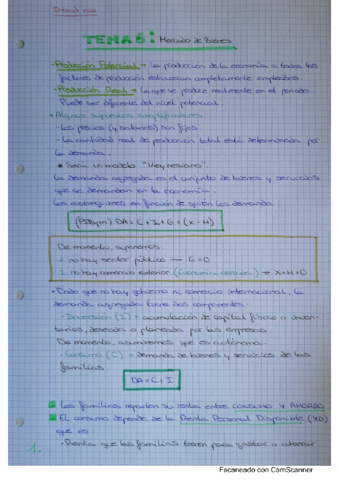 TEMA 6: Mercado de Bienes
· Producción Potencial → la producción de la economía si todos los
factores de producción estuvieran completamente empleados.
· Producción Real → la que se produce realmente en el periodo.
Puede ser diferente del nivel potencial.
· Algunos supuestos simplificadores:
- Los precios (y salarios) son fijos.
- La cantidad real de producción total está determinada por
la demanda.
* Sería un modelo "Keynesiano".
La demanda agregada es el conjunto de bienes y servicios
que se demandan en la economía.
Los distinguimos en función de quién los demanda.
(PIBpm) DA = C + I + G + (X - M)
De momento, suponemos:
1. no hay sector público → G=0
2. no hay comercio exterior (Economía cerrada) → X=M=0
· Dado que no hay gobierno ni comercio internacional, la
demanda agregada tiene dos componentes:
- Inversión (I) = acumulación de capital físico o inven-
tarios, deseados o planeados por las empresas.
De momento, asumiremos que es autónoma.
- Consumo (C) = demanda de bienes y servicios de las
familias.
DA = C + I
Las familias reparten su renta entre CONSUMO Y AHORRO
EL consumo depende de la Renta Personal Disponible (YD)
que es:
- Renta que las familias tienen para gastar o ahorrar.
1.
Escaneado con CamScanner